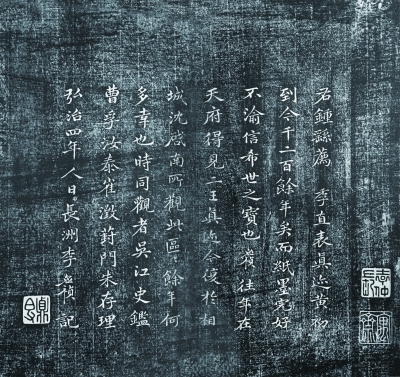 右鍾繇薦季直表真迹黄初
到今千二百餘年矣而紙墨完好
不渝信希世之寶也廣往年在
天府得見二王真迹今復於相
城沈啓南所觀此區區餘年何
多幸也時同觀者吳江史鑑
曹孚汝泰崔澂葑門朱存理
弘治四年人日長洲李應禎記